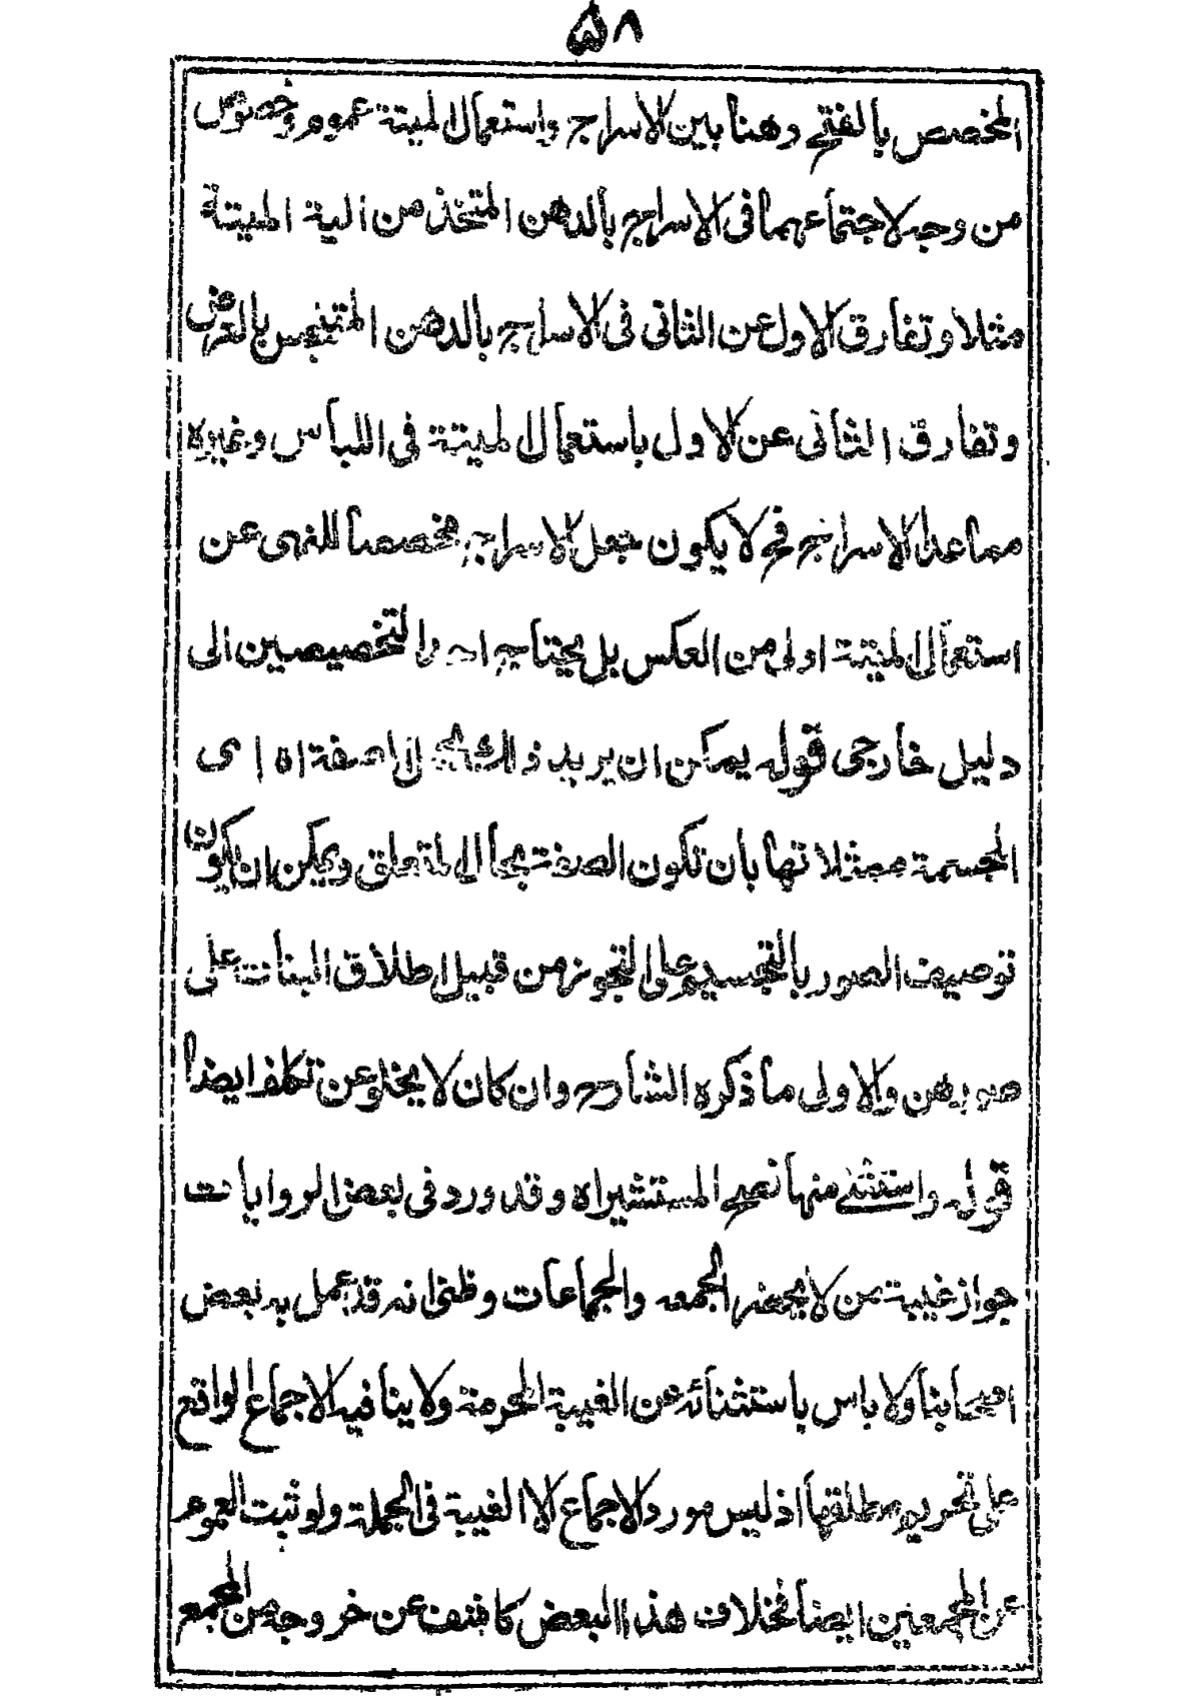 ٥٨
المخصص بالفتح وهنا بين الاسراج واستعمال الميتة عموم وخصوص
من وجه لاجتماعهما فى الاسراج بالدهن المتخذ من الية الميتة
مثلا وتفارق الاول عن الثانى فى الاسراج بالدهن المتنجس بالعرض
وتفارق الثانى عن الاول باستعمال الميتة فى اللباس وغيره
مما عدا الاسراج فح لا يكون جعل الاسراج مخصصا للنهى عن
استعمال الميتة اولى من العكس بل يحتاج احد التخصيصين الى
دليل خارجى قوله يمكن ان يريد ذلك الصفة اه اى
المجسمة ممثلاتها بان تكون الصفة بحال المتعلق ويمكن ان يكون
توصيف الصور بالتجسيم على التجوز من قبيل اطلاق البنات على
صورهن والاولى ما ذكره الشارح وان كان لا يخلو عن تكلف ايضا
قوله واستثنى منها نصح المستشير اه وقد ورد فى بعض الروايات
جواز غيبة من لا يحضر الجمعه والجماعات وظنى انه قد عمل به بعض
اصحابنا ولا باس باستثنائه عن الغيبة المحرمة ولا ينافيه الاجماع الواقع
على تحريم مطلقها اذ ليس مورد الاجماع الا الغيبة فى الجملة ولو ثبت العموم
عن المجمعين ايضا فخلاف هذا البعض كاشف عن خروجه من المجمع